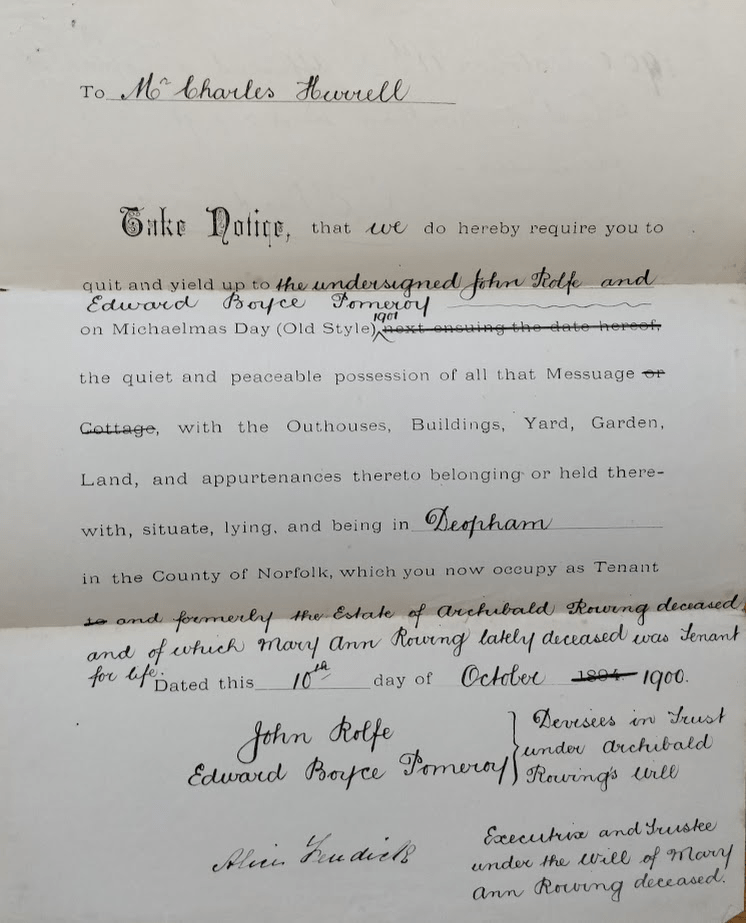 To Mr Charles Hurrell
Take Notice, that we do hereby require you to
quit and yield up to the undersigned John Rolfe and
Edward Boyce Pomeroy
1901
on Michaelmas Day (Old Style) next ensuing the date hereof,
the quiet and peaceable possession of all that Messuage or
Cottage, with the Outhouses, Buildings, Yard, Garden,
Land, and appurtenances thereto belonging or held there-
with, situate, lying, and being in Deopham
in the County of Norfolk, which you now occupy as Tenant
to and formerly the Estate of Archibald Rowing deceased
and of which Mary Ann Rowing lately deceased was Tenant
for life.
Dated this 10th day of October 1894. 1900.
John Rolfe
Edward Boyce Pomeroy
Devisees in Trust
under Archibald
Rowing's Will
Alice Fendick
Executrix and Trustee
under the Will of Mary
Ann Rowing deceased.